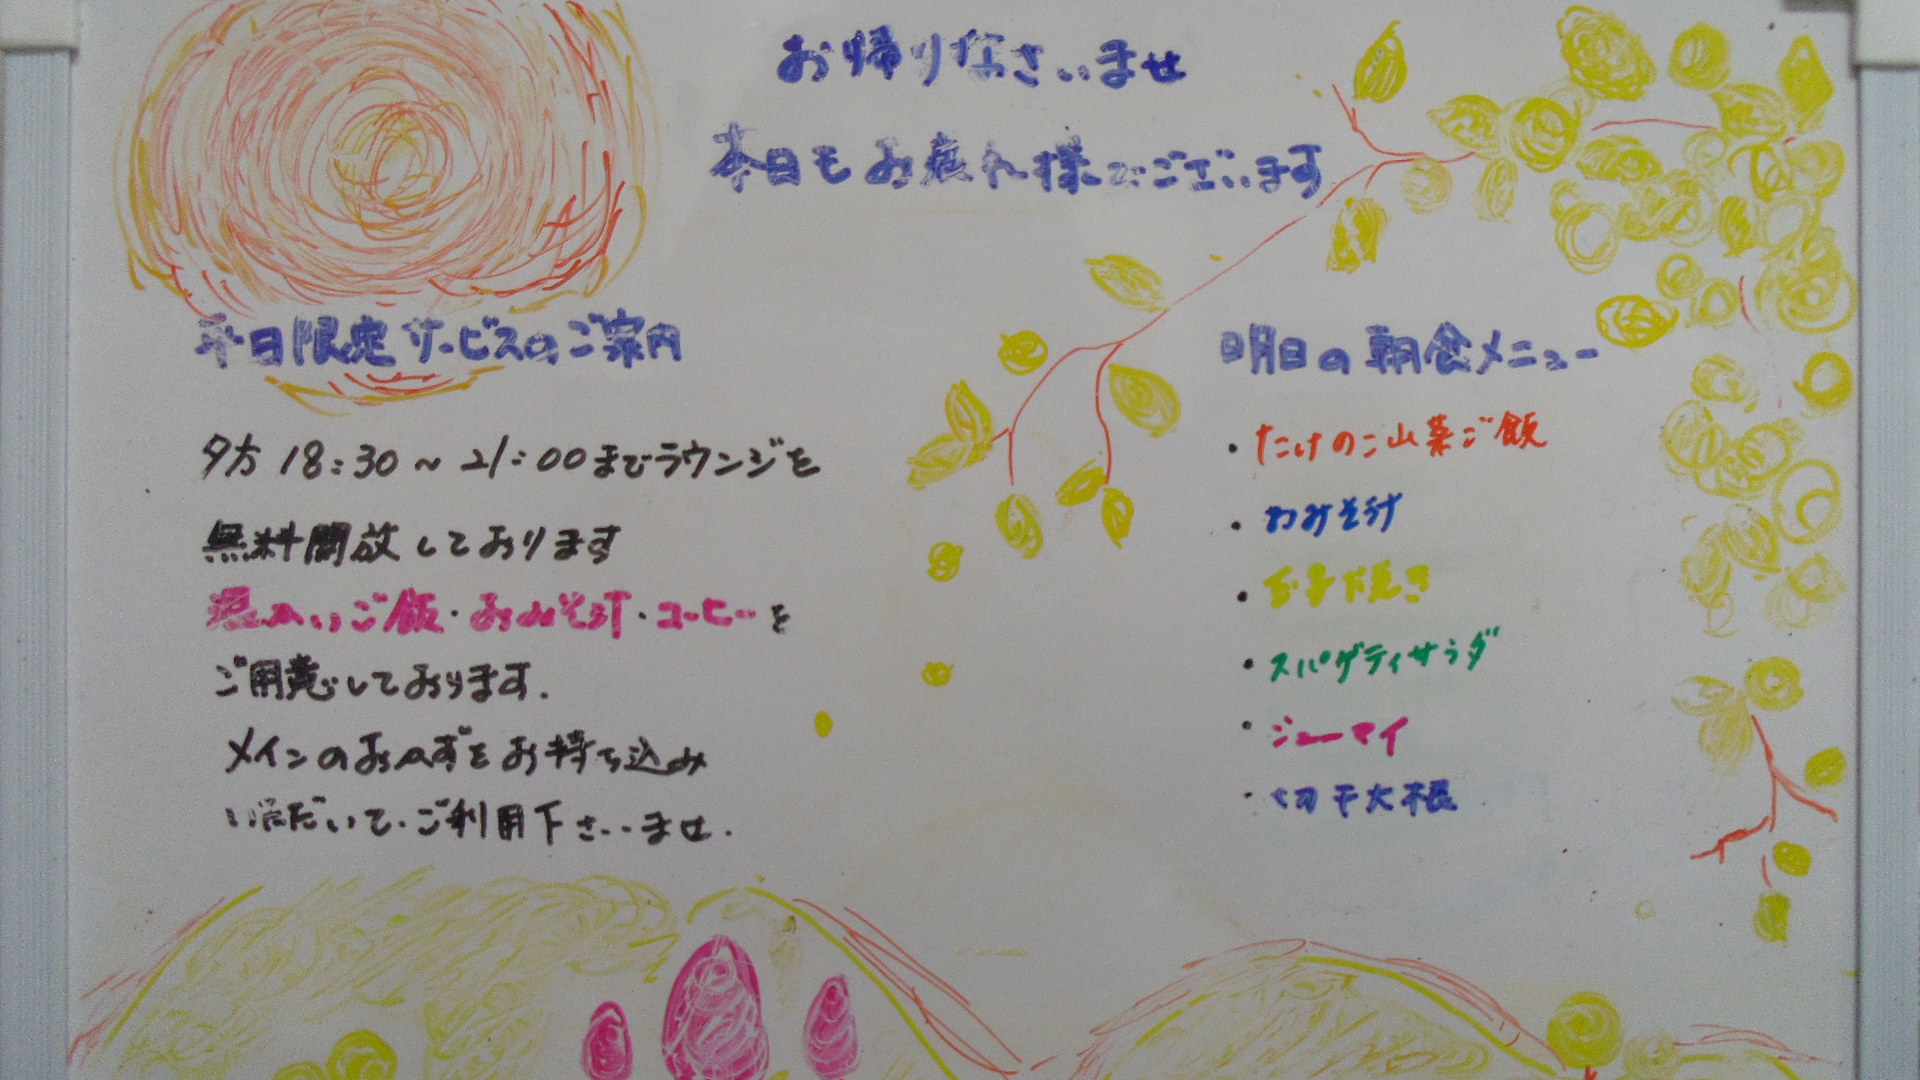 お帰りなさいませ
本日もお疲れ様でございます
平日限定サービスのご案内
夕方 18:30 ~ 21:00までラウンジを
無料開放しております
温かいご飯・おみそ汁・コーヒーを
ご用意しております.
メインのおかずをお持ち込み
いただいて、ご利用下さいませ.
明日の朝食メニュー
・たけのこ山菜ご飯
・おみそ汁
・玉子焼き
・スパゲティサラダ
・シューマイ
・切干大根